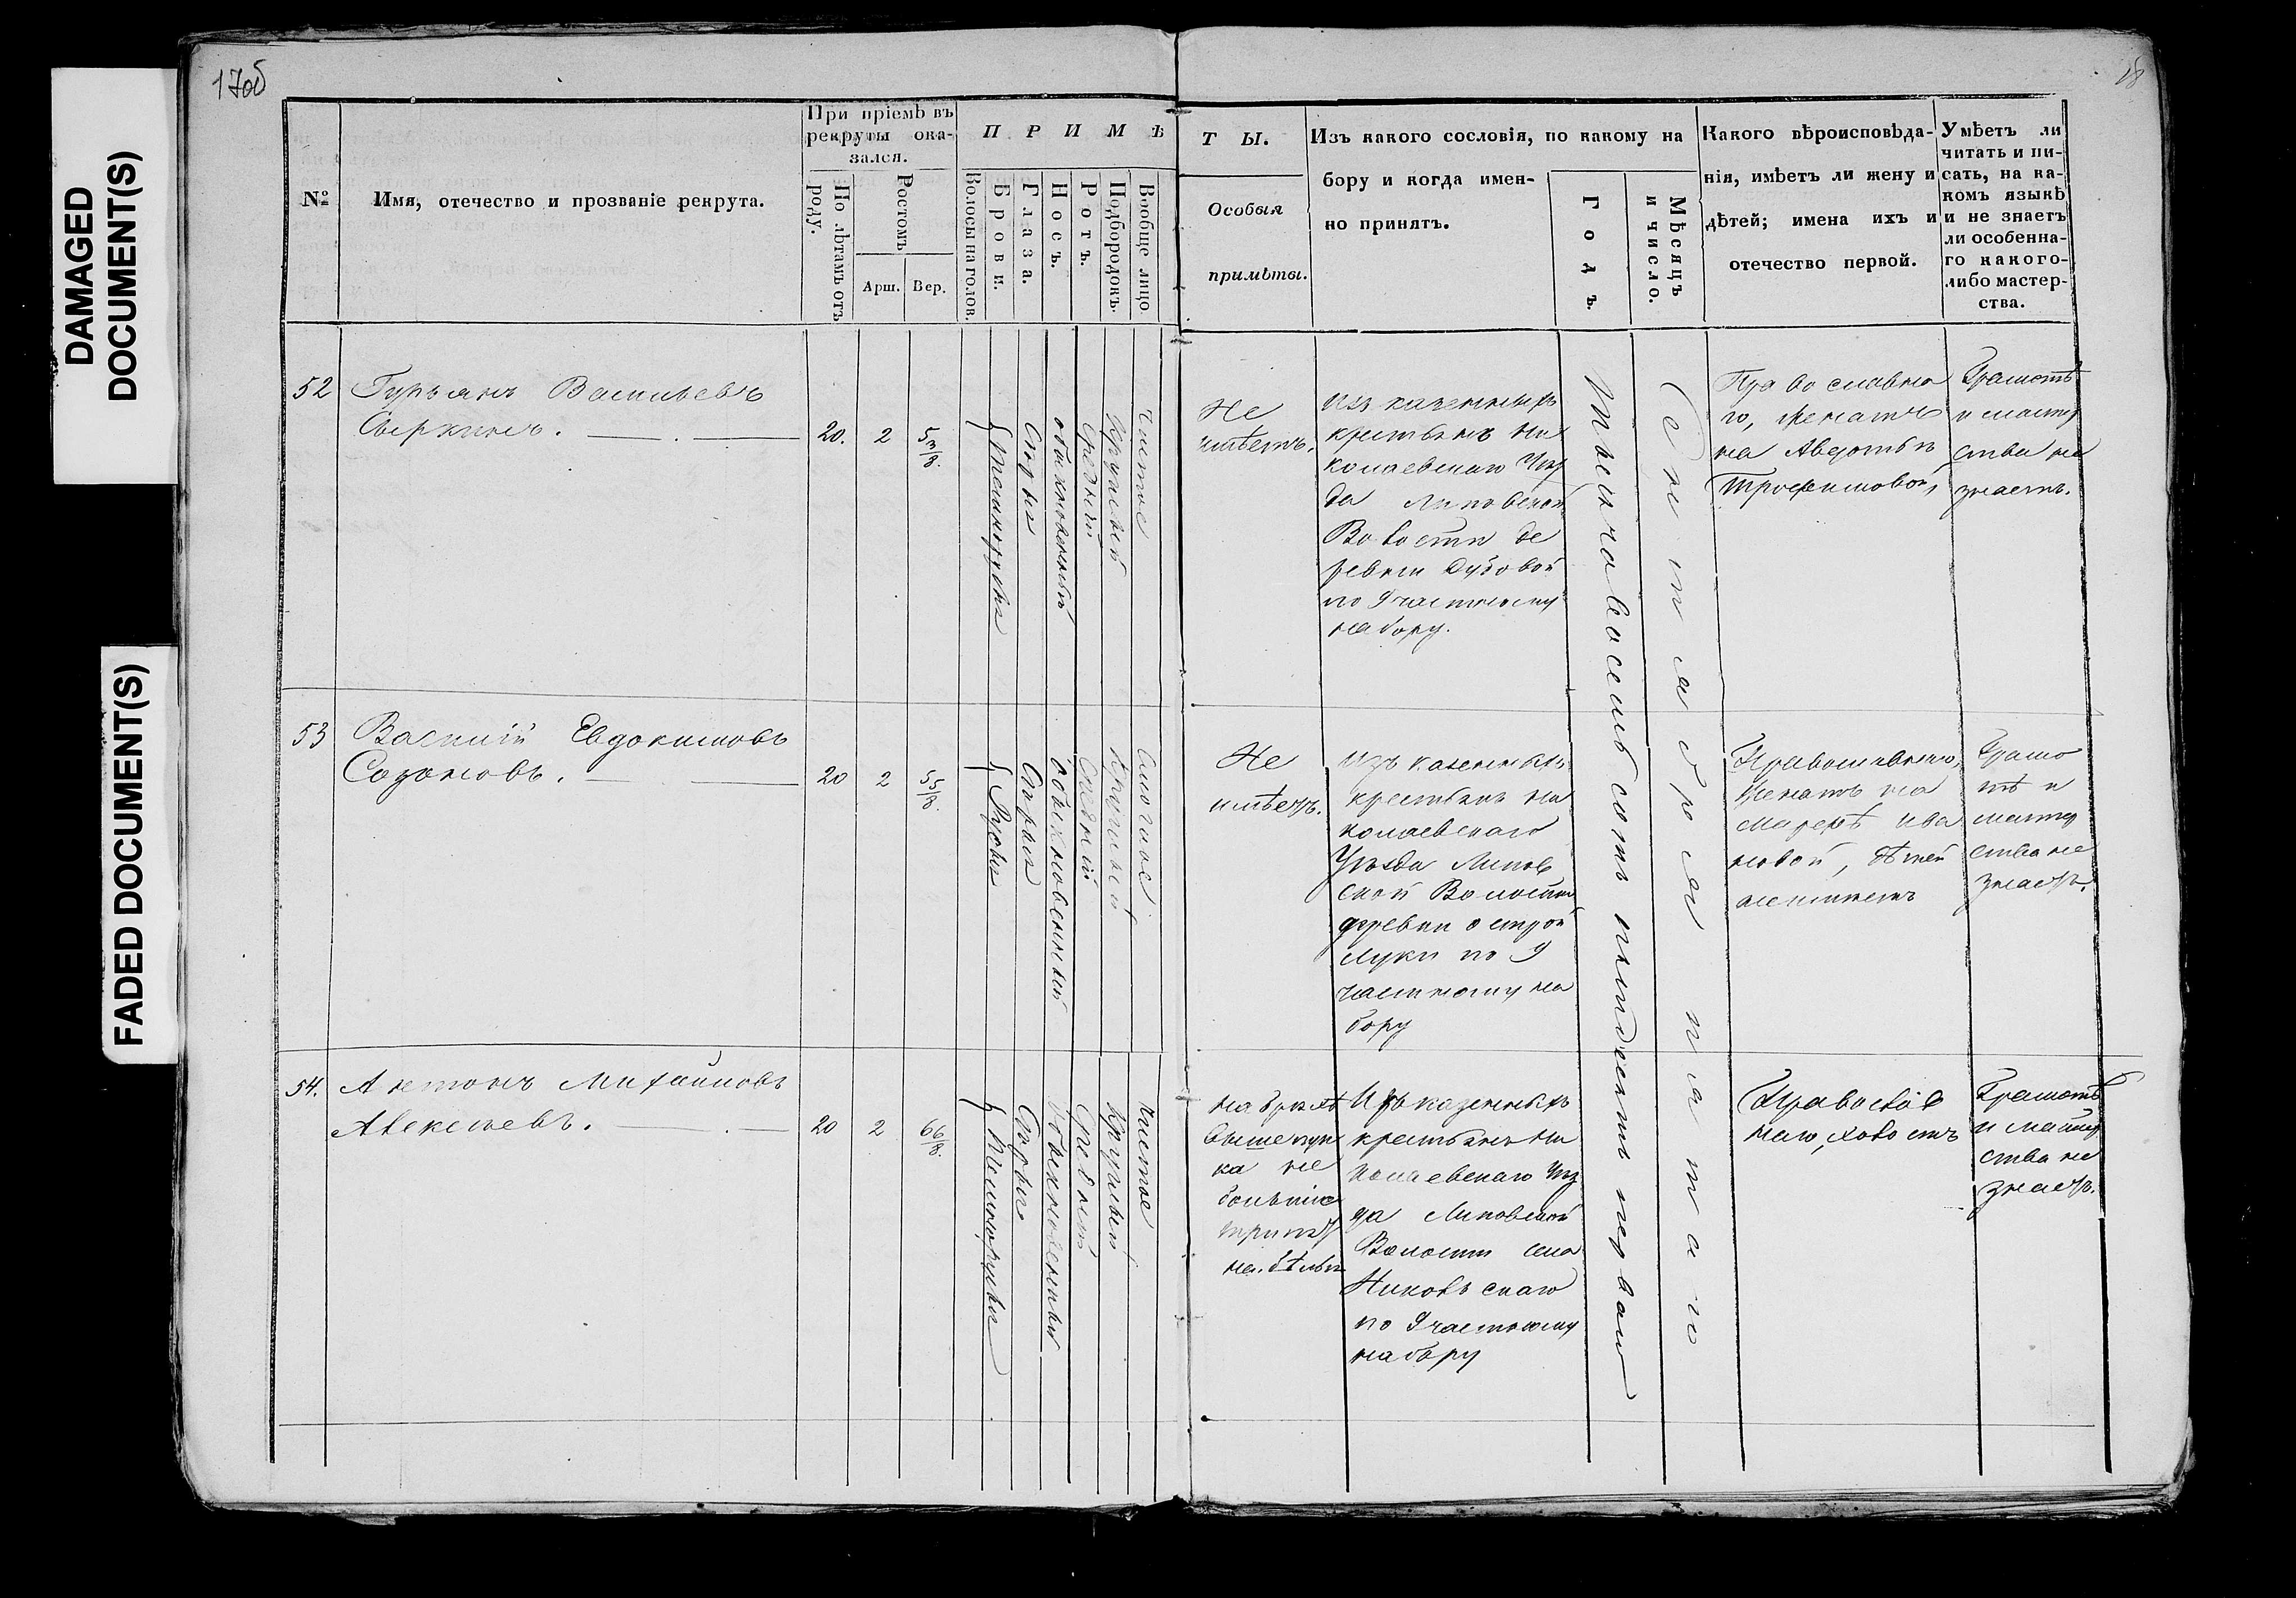 DAMAGED
DOCUMENT(S)
FADED DOCUMENT(S)
17об
18
№
Имя, отечество и прозваніе рекрута.
При пріемѣ въ
рекруты ока-
зался.
По лѣтамъ отъ
роду.
Ростомъ
Арш.
Вер.
ПРИМѢ
Волосы на голов.
Брови.
Глаза.
Носъ.
Ротъ.
Подбородокъ.
Вообще лицо
ТЫ.
Особыя
примѣты.
Изъ какого сословія, по какому на
бору и когда имен-
но принятъ.
Годъ.
Мѣсяцъ
и число.
Какого вѣроисповѣда-
нія, имѣетъ ли жену и
дѣтей; имена ихъ и
отечество первой.
Умѣетъ ли
читать и пи-
сать, на ка-
комъ языкѣ
и не знаетъ
ли особенна-
го какого-
либо мастер-
ства.
52
Гурьянъ Васильевъ
Сверкинъ.
20.
2
5 3/8.
Темнорусыя
Сѣрыя
обыкновенный
средній
Круглый
Чистое
Не
имѣетъ.
Изъ казенныхъ
крестьянъ Ни
колаевскаго Уѣз
да Липовской
Волости де
ревни Дубовой
по 9 частному
набору.
Тысяча восемь сотъ пятдесятъ перваго
Сентября пятаго
Православна
го, женатъ
на Авдотьѣ
Трофимовой,
Грамотѣ
и мастер
ства не
знаетъ.
53
Василій Евдокимовъ
Созоновъ.
20
2
5 5/8.
Русыя
Сѣрыя
обыкновенный
Средній
Круглый
Смуглое
Не
имѣетъ.
Изъ казенныхъ
крестьянъ Ни
колаевскаго
Уѣзда Липов
ской Волости
деревни острой
Луки по 9
частному на
бору
Православнаго,
Женатъ на
Ива
новой, дѣтей
неимѣетъ
Грамо
тѣ и
мастер
ства не
знаетъ.
54.
Антонъ Михайловъ
Алексѣевъ.
20
2
6 6/8.
Темнорусыя
Сѣрые
обыкновенный
Средній
Круглый
Чистое
на брюхѣ
выше пуп
ка не
большіе
три
Изъ казенныхъ
крестьянъ Ни
колаевскаго Уѣз
да Липовской
Волости села
по 9 частному
набору
Православ
наго, холостъ
Грамотѣ
и мастер
ства не
знаетъ.